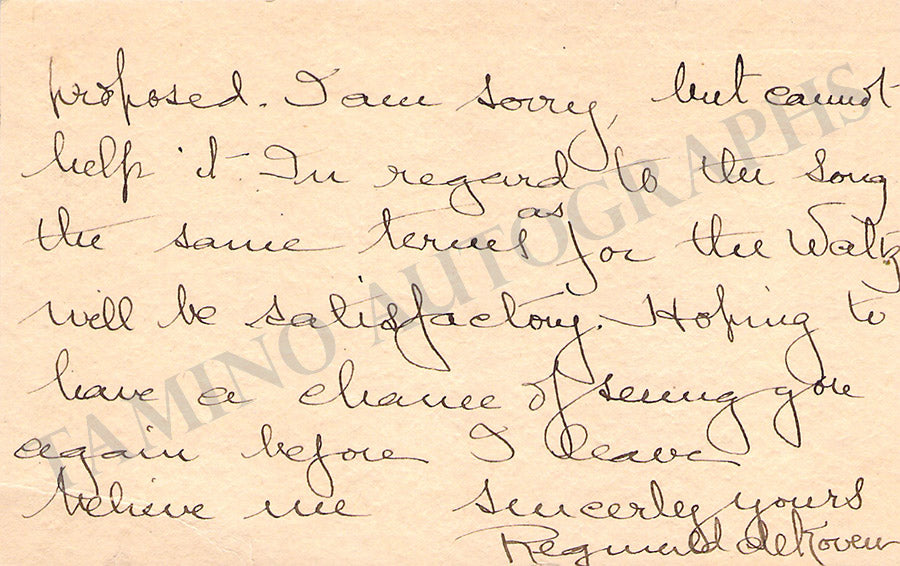 proposed. I am sorry, but cannot
help it. In regard to the song
the same terms as for the Waltz
will be satisfactory. Hoping to
have a chance of seeing you
again before I leave
believe me sincerely yours
Reginald deKoven
TAMINO AUTOGRAPHS